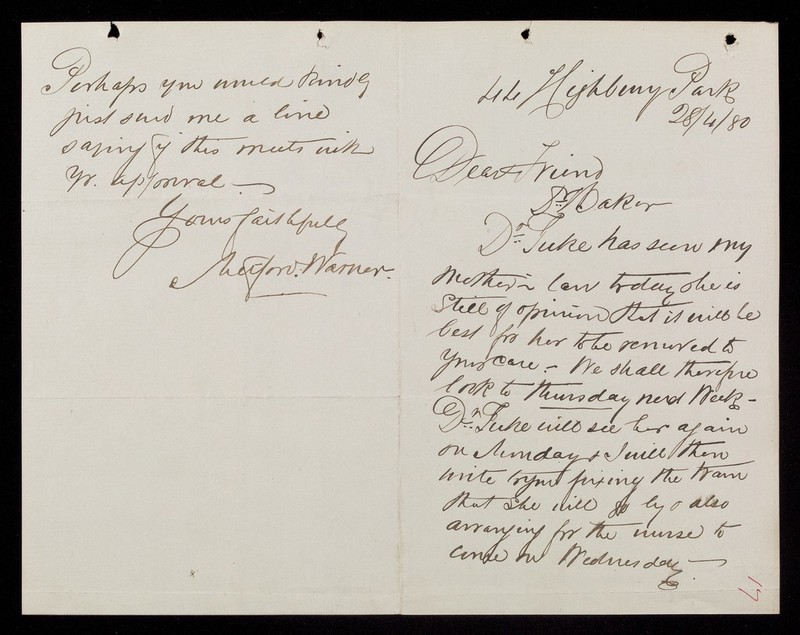 44 Highbury Park
28/4/80
Dear Friend
Dr. Baker
Dr. Tuke has seen my
mother in law today she is
still of opinion that it will be
best for her to be removed to
your care. – We shall therefore
look to Thursday next week –
Dr. Tuke will see her again
on Monday & I will then
write to you fixing the train
that she will go by & also
arranging for the nurse to
come on Wednesday –
17
Perhaps you would kindly
just send me a line
saying if this meets with
yr. approval –
Yours faithfully
Metford Warner.